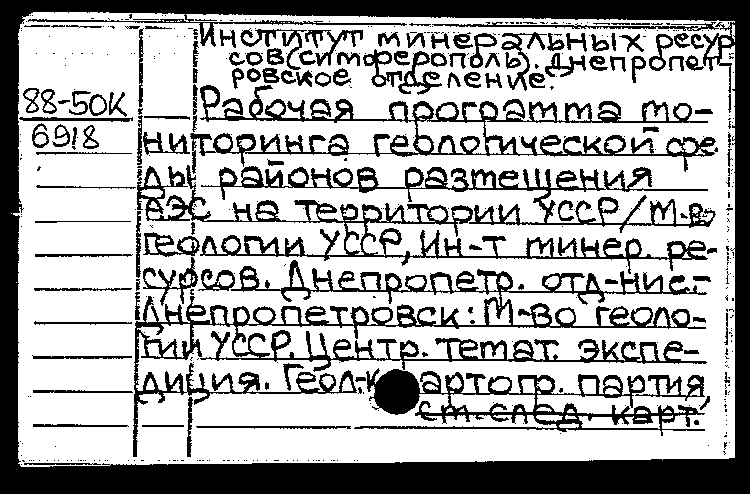 Институт минеральных ресур
сов (Симферополь). Днепропет-
ровское отделение.
88-50К
6918
Рабочая программа мо-
ниторинга геологической сре
ды районов размещения
АЭС на территории УССР/М-во
геологии УССР, Ин-т минер. ре-
сурсов. Днепропетр. отд-ние.-
Днепропетровск: М-во геоло-
гии УССР. Центр. темат. экспе-
диция. Геол.-картогр. партия,
см. след. карт.